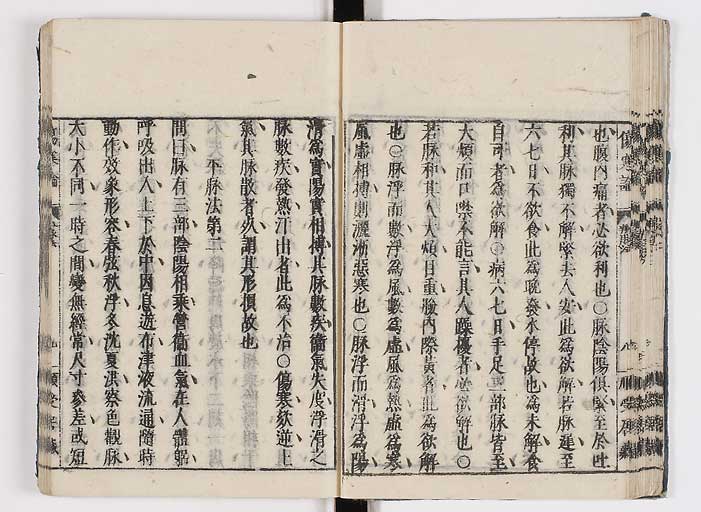 傷寒論
也腹內痛者必欲利也〇脉陰陽俱緊至於吐
利其脉獨不解緊去人安此為欲解若脉遲至
六七日不欲食此為晚發水停故也為未解食
自可者為欲解〇病六七日手足三部脉皆至
大煩而口噤不能言其人躁擾者必欲解也〇
若脉和其人大煩目重瞼內際黃者此為欲解
也〇脉浮而數浮為風數為虛風為熱虛為寒
風虛相搏則灑淅惡寒也〇脉浮而滑浮為陽
滑為實陽實相搏其脉數疾衛氣失度浮滑之
脉數疾發熱汗出者此為不治〇傷寒欬逆上
氣其脉散者死謂其形損故也
平脉法第二
問曰脉有三部陰陽相乘營衛血氣在人體躬
呼吸出入上下於中因息遊布津液流通隨時
動作效象形容春弦秋浮冬沉夏洪察色觀脉
大小不同一時之間變無經常尺寸參差或短